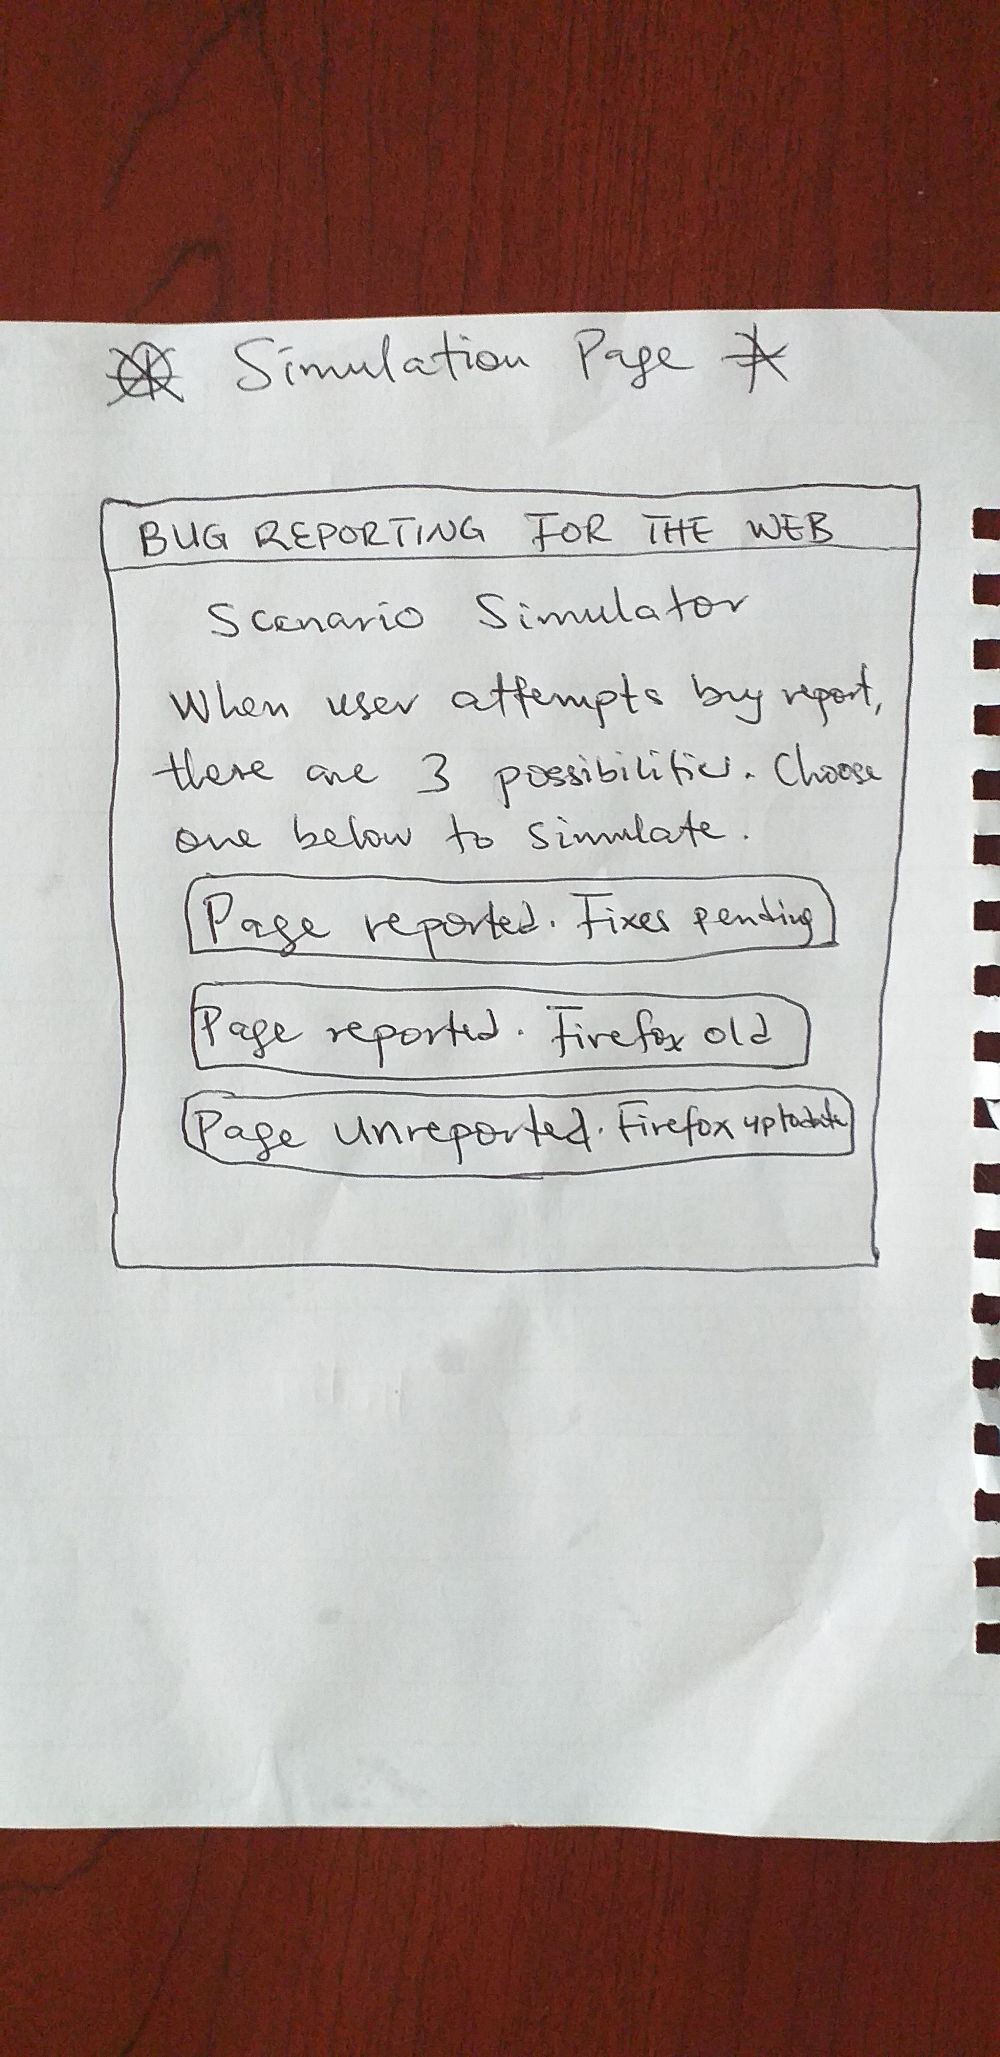 Simulation Page
BUG REPORTING FOR THE WEB
Scenario Simulator
When user attempts bug report,
there are 3 possibilities. Choose
one below to simulate.
Page reported. Fixes pending
Page reported. Firefox old
Page unreported. Firefox uptodate